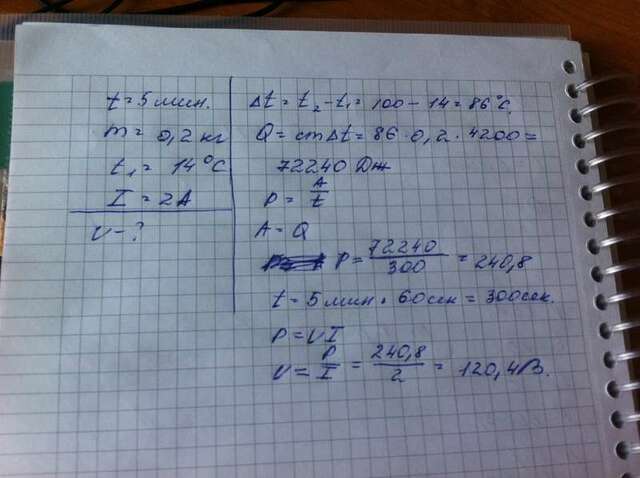 t = 5 мин.
m = 0,2 кг
t₁ = 14°C
I = 2A
U - ?
Δt = t₂ - t₁ = 100 - 14 = 86°C.
Q = cmΔt = 86 · 0,2 · 4200 =
72240 Дж
P = A/t
A = Q
P = 72240/300 = 240,8
t = 5 мин · 60сек = 300сек.
P = UI
U = P/I = 240,8/2 = 120,4В.